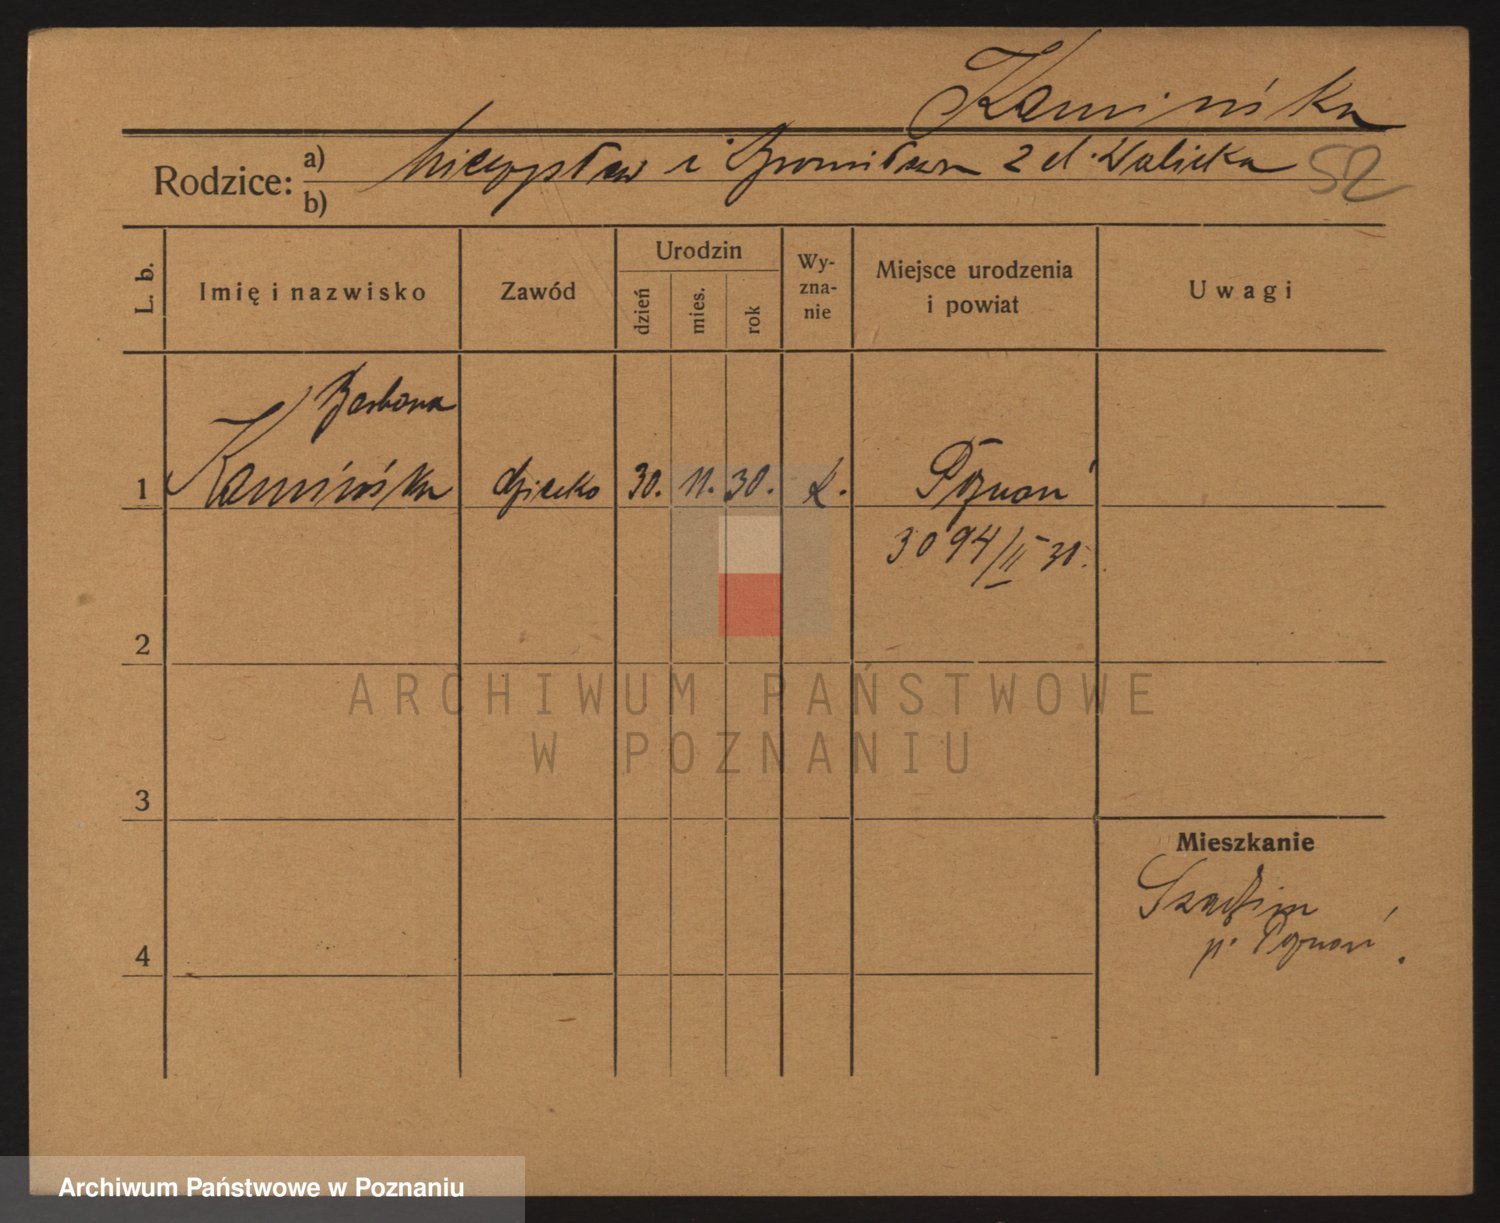 Kamińska
Rodzice: a) Mieczysław i Bronisława z d. Walicka 52
b)
L. b. Imię i nazwisko Zawód Urodzin dzień mies. rok Wy-zna-nie Miejsce urodzenia i powiat Uwagi
Barbara
1 Kamińska dziecko 30. 11. 30. k. Poznań
3094/II 30.
2
ARCHIWUM PAŃSTWOWE
W POZNANIU
3
Mieszkanie
p. Poznań.
4
Archiwum Państwowe w Poznaniu